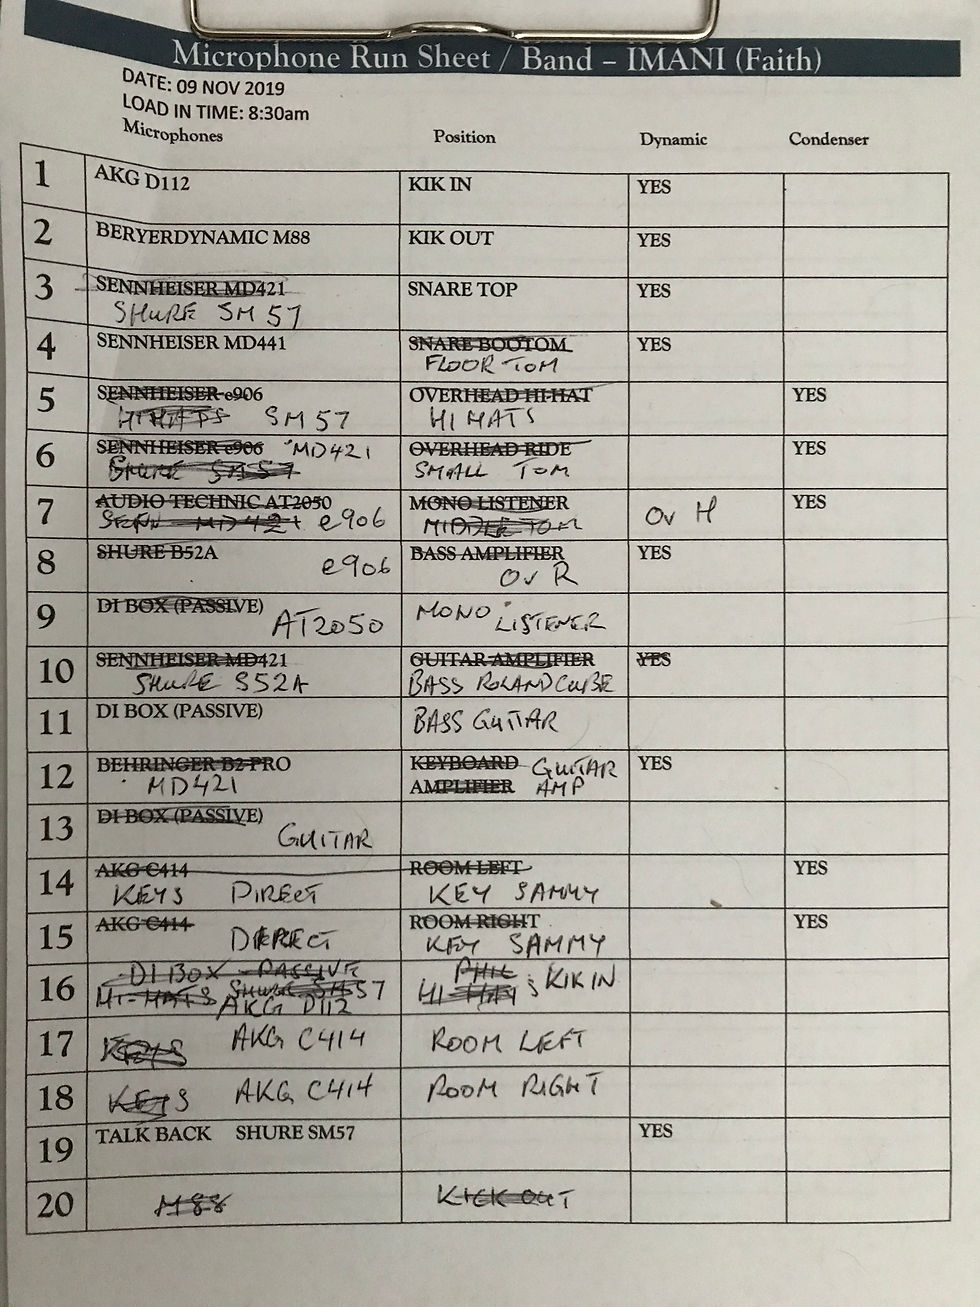 Microphone Run Sheet / Band – IMANI (Faith)
DATE: 09 NOV 2019
LOAD IN TIME: 8:30am
Microphones Position Dynamic Condenser
1 AKG D112 KIK IN YES
2 BERYERDYNAMIC M88 KIK OUT YES
3 SENNHEISER MD421 SNARE TOP YES
SHURE SM 57
4 SENNHEISER MD441 SNARE BOOTOM YES
FLOOR TOM
5 SENNHEISER e906 OVERHEAD HI-HAT YES
HIHATS SM 57 HI HATS
6 SENNHEISER e906 MD421 OVERHEAD RIDE YES
SHURE SM 57 SMALL TOM
7 AUDIO TECHNIC AT2050 MONO LISTENER YES
SENN MD421 e906 MIDDLE TOM OV H
8 SHURE B52A BASS AMPLIFIER YES
e906 OV R
9 DI BOX (PASSIVE) MONO LISTENER
AT2050
10 SENNHEISER MD421 GUITAR AMPLIFIER YES
SHURE S52A BASS ROLAND CUBE
11 DI BOX (PASSIVE) BASS GUITAR
12 BEHRINGER B2 PRO KEYBOARD GUITAR YES
MD421 AMPLIFIER AMP
13 DI BOX (PASSIVE)
GUITAR
14 AKG C414 ROOM LEFT YES
KEYS DIRECT KEY SAMMY
15 AKG C414 ROOM RIGHT YES
DIRECT KEY SAMMY
16 DI BOX - PASSIVE PHIL KIK IN
HI-HATS SHURE SM57 HI-HATS
AKG D112
17 KEYS AKG C414 ROOM LEFT
18 KEYS AKG C414 ROOM RIGHT
19 TALK BACK SHURE SM57 YES
20 M88 KICK OUT